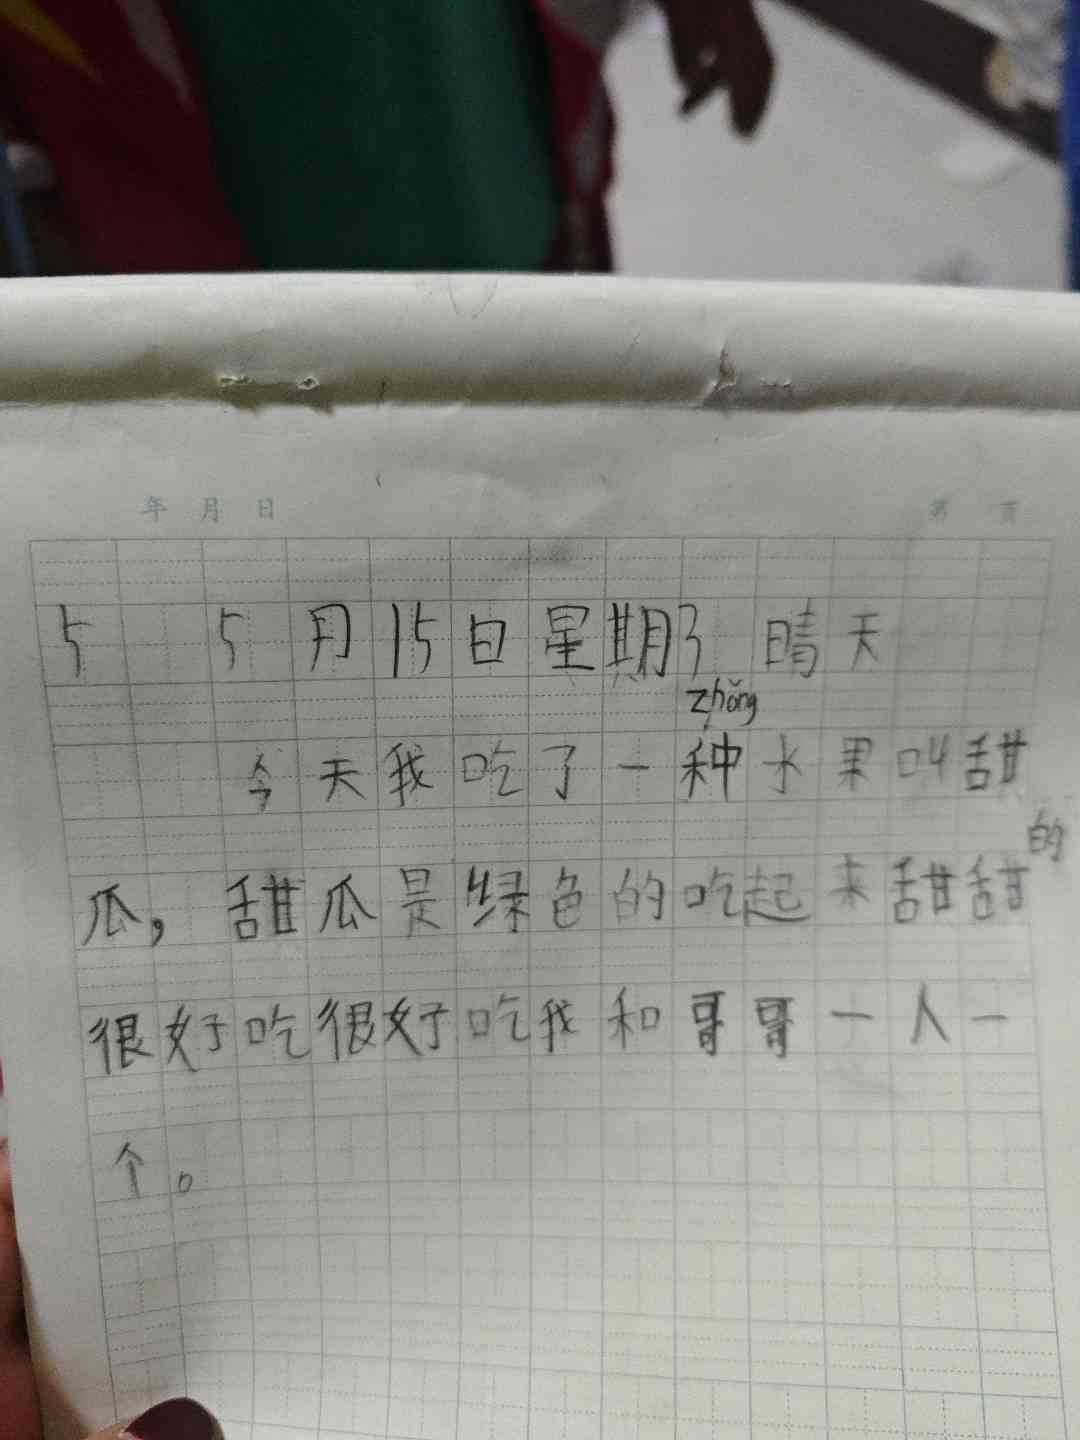 年 月 日 第 页
5 5月15日星期3 晴天
zhǒng
今天我吃了一种水果叫甜
的
瓜，甜瓜是绿色的吃起来甜甜
很好吃很好吃我和哥哥一人一
个。